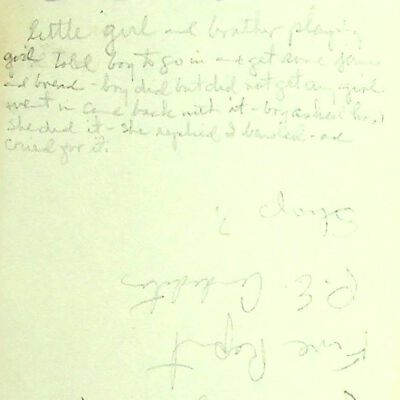 Little girl and brother playing
girl told boy to go in and get some jam
and bread - boy did but did not get any girl
went in came back with it - boy asked how
she did it - she replied I bawled - and
cried for it.
Shop
P. E.
Fire Report